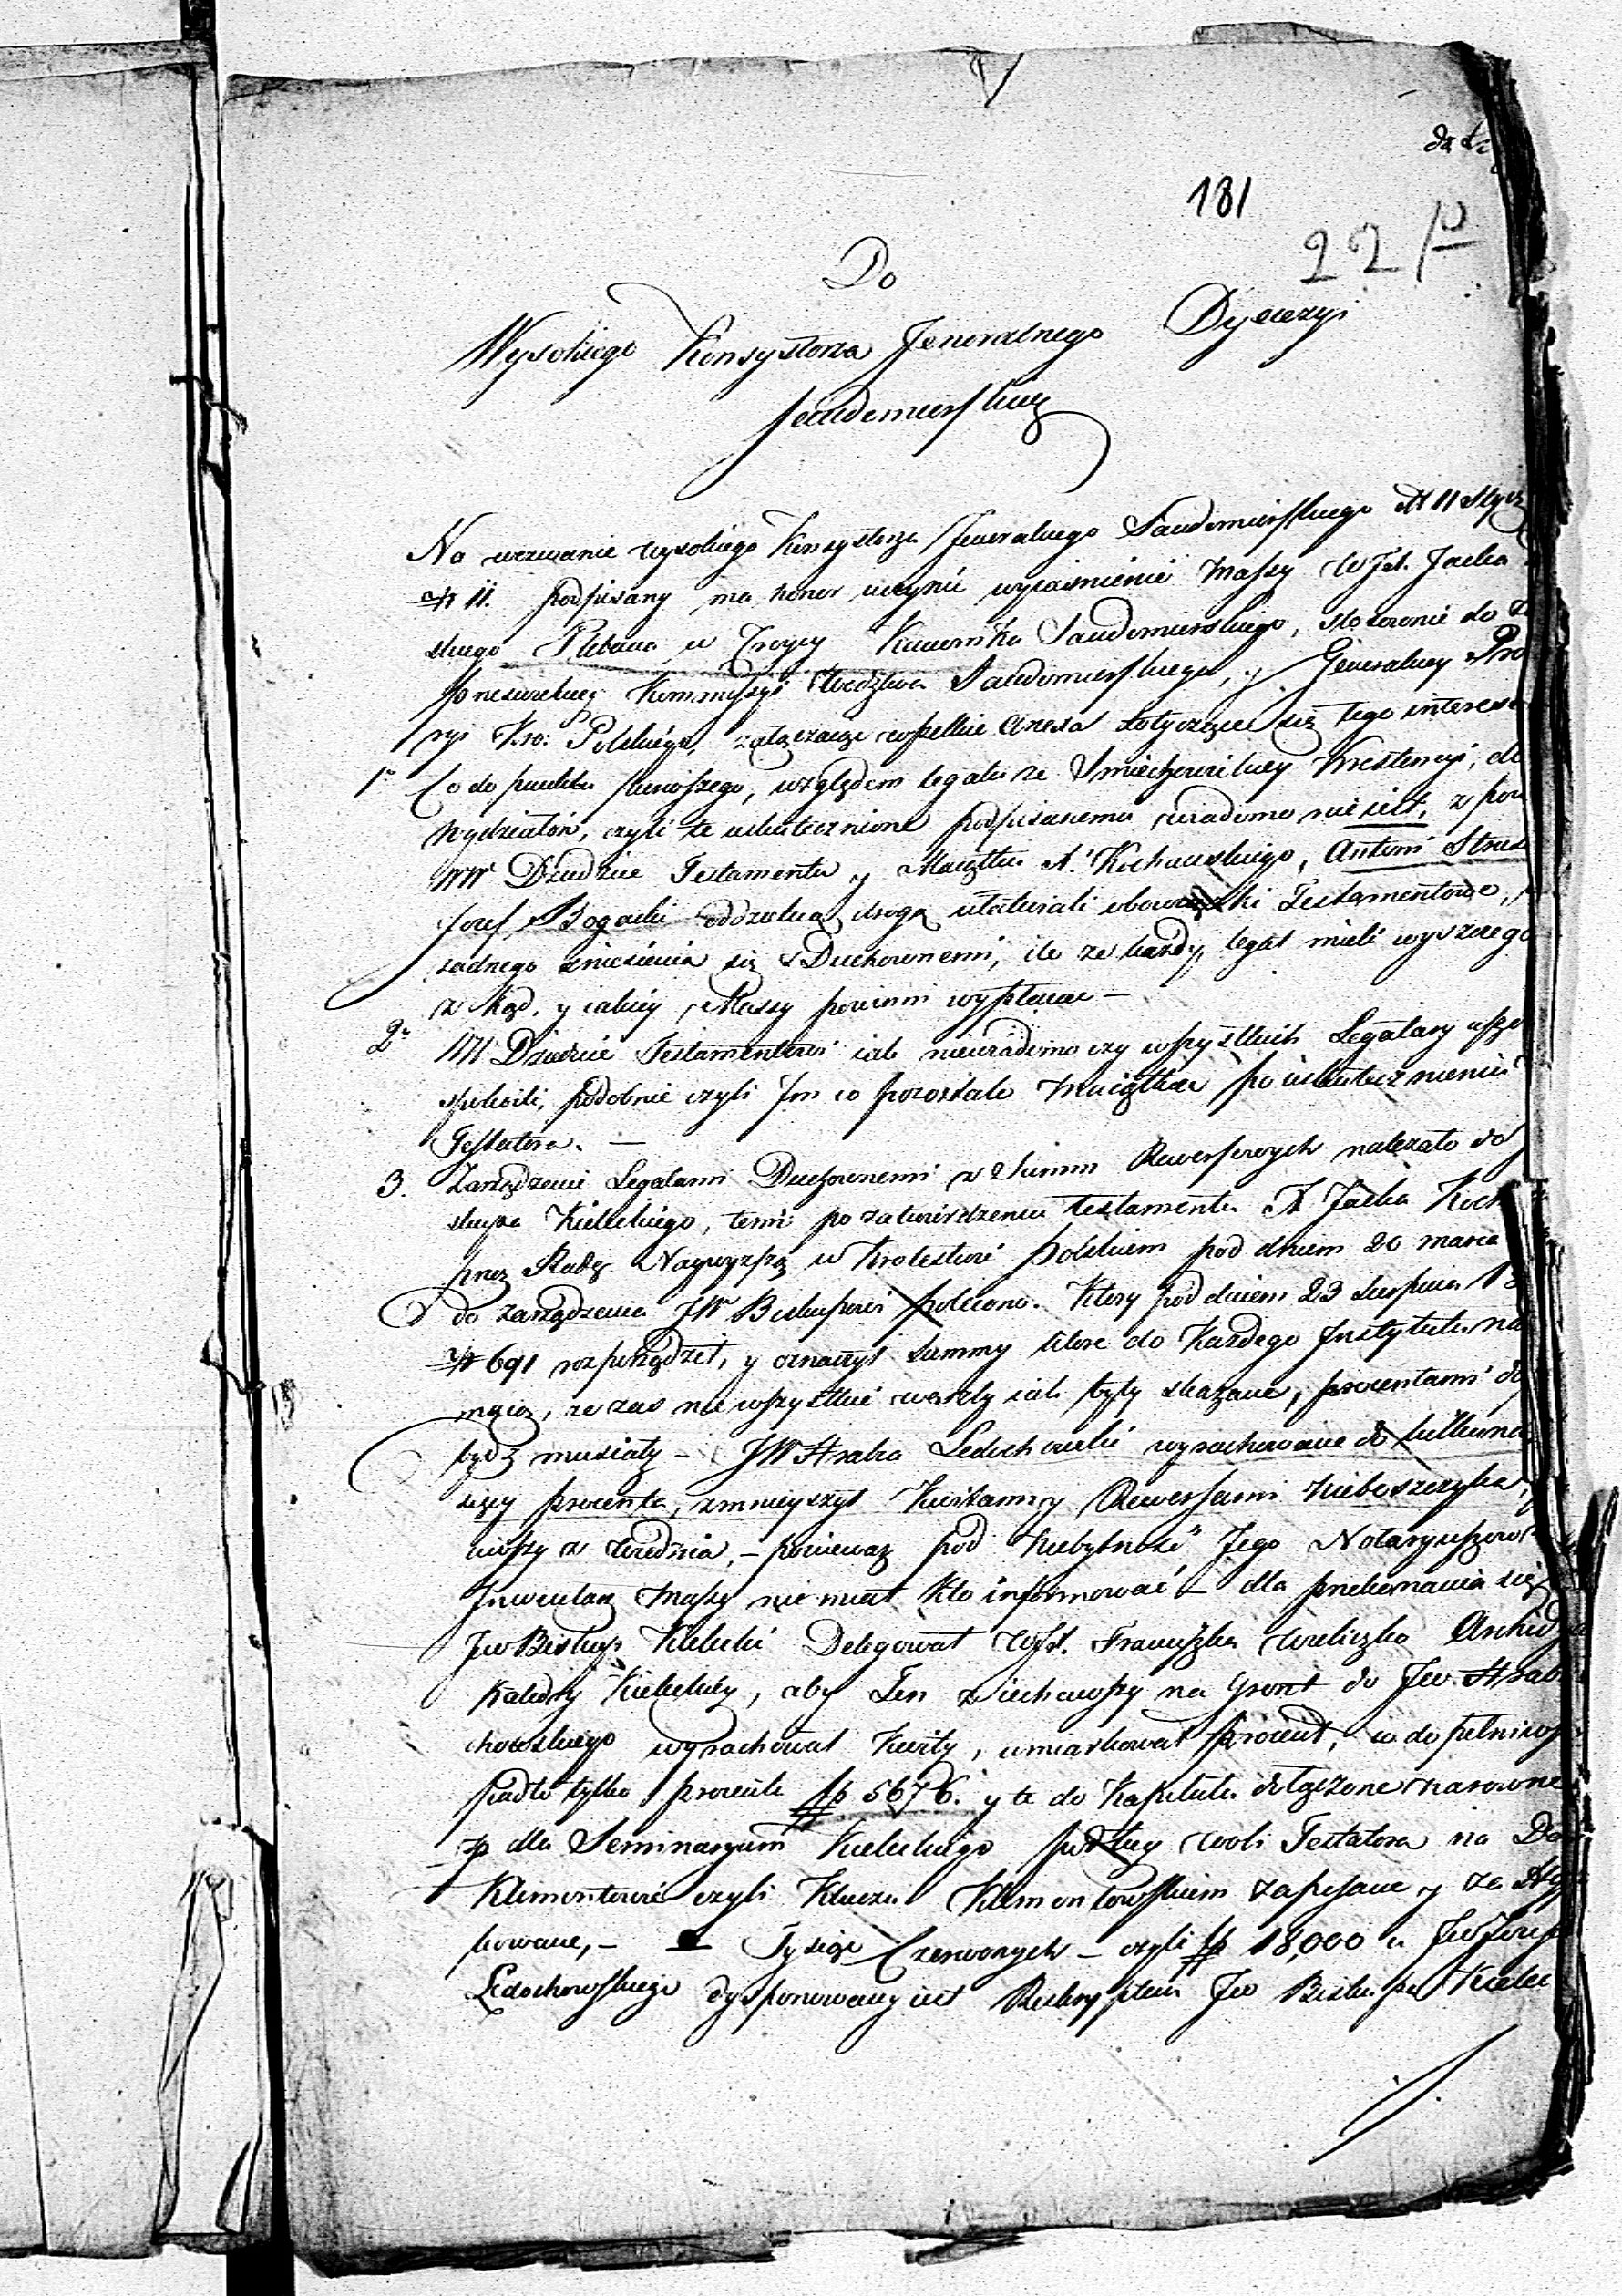 181
22
Do
Wysokiego Konsystorza Jeneralnego Dyecezyi
Sandomierskiey
Na wezwanie wysokiego Konsystorza Jeneralnego Sandomierskiego 11 Stycz
11. podpisany ma honor uczynić wyiaśnienie Massy Jacka
skiego Plebana w Troycy Kanonika Sandomierskiego, stosownie do
Kommissyi Wdztwa Sandomierskiego, y Generalney Pro
ryi Kro: Polskiego, załączaiąc wszelkie dotyczące się tego interess
1o Co do punktu pierwszego, względem legatu ze Krestencyi, do
czyli te uskutecznione podpisanemu wiadomo nie iest, z pow
WW Dziedzice Testamentu y Maiątku Kochanskiego, Antoni
Jozef Bogacki oddzielną drogą ułatwiali obowiązki Testamentowe,
zadnego zniesienia się z Duchownemi, ile ze kazdy legat mieli wyszczego
z kąd, y iakiey Massy powinni wypłacac —
2o WW Dziedzice Testamentowi iak niewiadomo czy wszystkich Legatary
spokoili, podobnie czyli Im co pozostało Maiątku po uskutecznieniu
Testatora. —
3. Zarządzenie Legatami Duchownemi z Summ Rewersowych należało do
skupa Kieleckiego, temi po zatwierdzeniu testamentu Jacka Koch
przez Radę Naywyzszą w Krolestwie Polskiem pod dniem 20 marca
do zarządzenia JW Biskupowi polecono. Ktory pod dniem 23 Sierpnia 18
691 rozporządził, y oznaczył Summy ktore do Każdego Instytutu na
maią, ze zas nie wszystkie weszły iak były skazane, procentami do
bydz musiały — JW Hrabia Ledochowski wyrachowane do kilkuna
sięcy procenta, zmnieyszył Kwitami y Rewersami Nieboszczyka,
z Wiednia, — poniewaz pod Niebytność Jego Notaryuszowi
Inwentarz Massy nie miał kto informować — dla przekonania się
Jw Biskup Kielecki Delegował Franciszka Wieliczko Archidya
Katedry Kieleckiey, aby Ten ziechawszy na Gront do Jw. Hrab
chowskiego wyrachował Kwity, umiarkował procent, co dopełniwszy
padło tylko procentu fp 5676. y te do Kapitału dołączone
zp dla Seminaryum Kieleckiego podług woli Testatora na Do
Klimontowie czyli Kluczu Klimontowskiem zapisane y za
kowane, — Tysiąc Czerwonych — czyli fp 18,000 u Jw Jozef
Ledochowskiego dysponowany iest Reskryptem Jw Biskupa Kielec